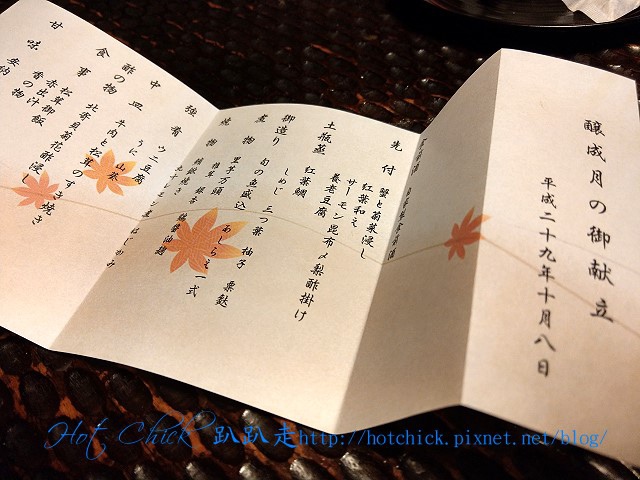 醸成月の御献立
平成二十九年十月八日
先付
蟹と菊菜浸し
紅葉和え
サーモン昆布〆梨酢掛け
養老豆腐
土瓶蒸
紅葉鯛
しめじ 三つ葉 柚子 粟麩
御造り
旬の魚盛込 あしらえ一式
煮物
里芋万頭
焼物
強肴
ウニ豆腐
うに 山葵
中皿
牛肉と松茸のすき焼き
酢の物
北寄貝菊花酢浸し
食事
松茸御飯
赤出汁
香の物
甘味
Hot Chick 趴趴走http://hotchick.pixnet.net/blog/